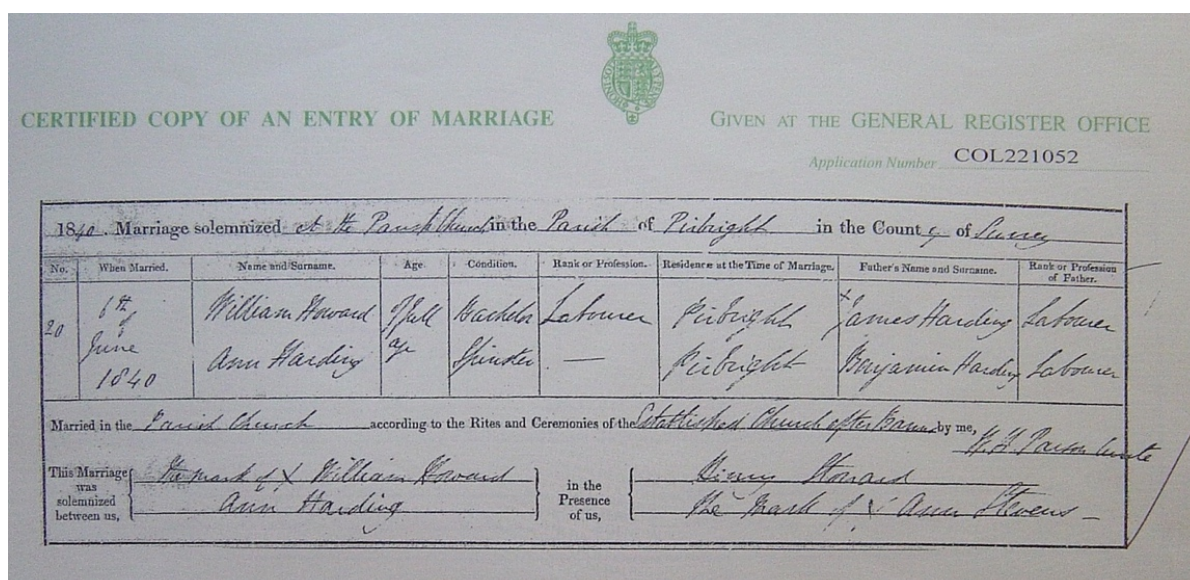 CERTIFIED COPY OF AN ENTRY OF MARRIAGE
GIVEN AT THE GENERAL REGISTER OFFICE
Application Number COL221052
1840. Marriage solemnized at the Parish Church in the Parish of Pirbright in the County of Surrey
No. When Married. Name and Surname. Age. Condition. Rank or Profession. Residence at the Time of Marriage. Father's Name and Surname. Rank or Profession of Father.
20 6th of June 1840 William Howard Of full age Bachelor Labourer Pirbright x James Harding Labourer
Ann Harding Spinster — Pirbright Benjamin Harding Labourer
Married in the Parish Church according to the Rites and Ceremonies of the Established Church after Banns by me,
This Marriage was solemnized between us, The mark of X William Howard
Ann Harding
in the Presence of us, Henry Howard
The Mark of X Ann Stevens